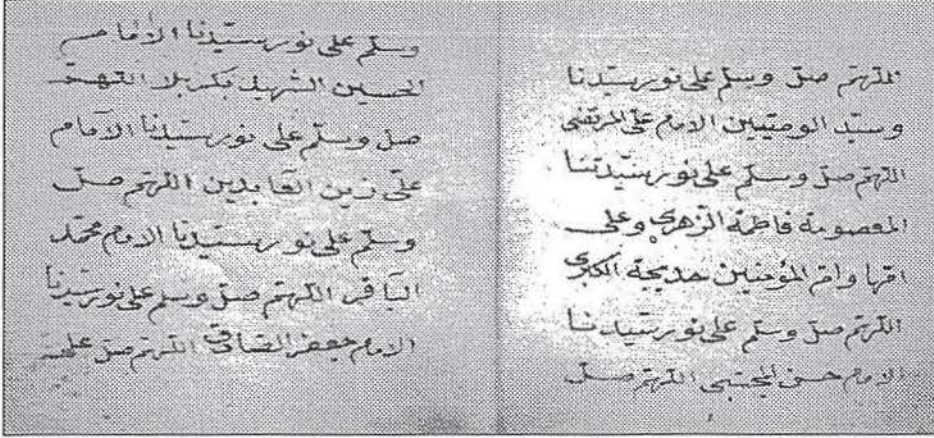 اللهم صل وسلم على نور سيدنا
وسيد الوصيين الامام على المرتضى
اللهم صل وسلم على نور سيدتنا
المعصومة فاطمة الزهرى وعلى
امها وام المؤمنين خديجة الكبرى
اللهم صل وسلم على نور سيدنا
الامام حسن المجتبى اللهم صل
وسلم على نور سيدنا الامام
الحسين الشهيد بكربلا اللهم
صل وسلم على نور سيدنا الامام
على زين العابدين اللهم صل
وسلم على نور سيدنا الامام محمد
الباقر اللهم صل وسلم على نور سيدنا
الامام جعفر الصادق اللهم صل